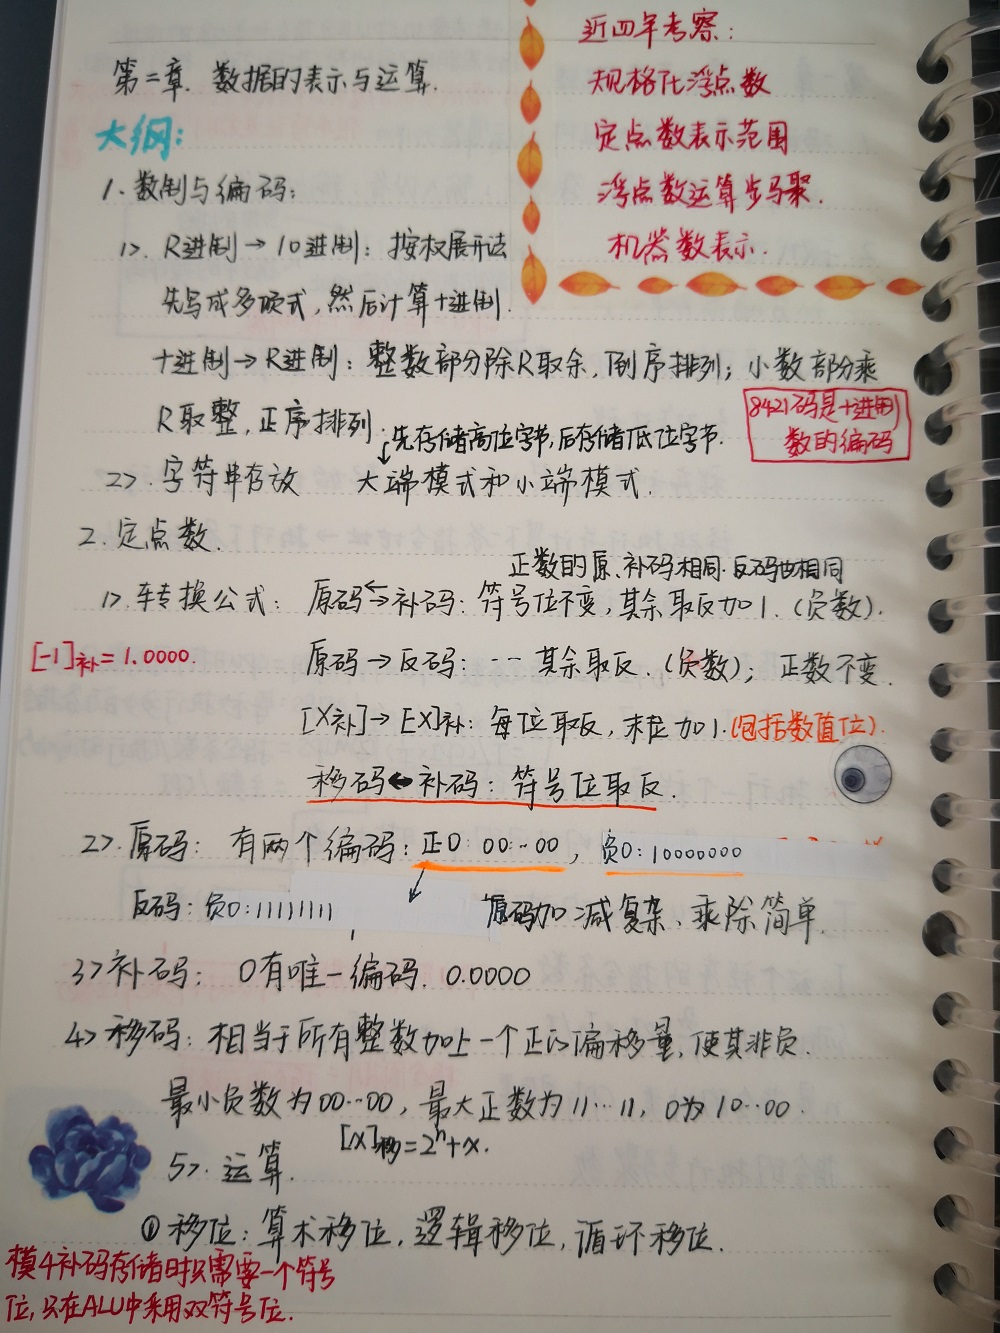 近四年考察：
规格化浮点数
定点数表示范围
浮点数运算步骤.
机器数表示.
第二章. 数据的表示与运算.
大纲：
1. 数制与编码：
1>. R进制→10进制：按权展开法
先写成多项式，然后计算十进制.
十进制→R进制：整数部分除R取余，倒序排列；小数部分乘
R取整，正序排列.
8421码是十进制
数的编码
↓先存储高位字节，后存储低位字节.
2>. 字符串存放 大端模式和小端模式.
2. 定点数.
正数的原、补码相同. 反码也相同
1>. 转换公式：原码↔补码：符号位不变，其余取反加1.（负数）.
[-1]补=1.0000.
原码→反码：-- 其余取反.（负数）；正数不变.
[X补]→[X]补：每位取反，末位加1.(包括数值位).
移码↔补码：符号位取反.
2>. 原码：有两个编码：正0：00…00，负0：10000000
反码：负0：11111111 原码加减复杂、乘除简单.
3>补码：0有唯一编码. 0.0000
4>移码：相当于所有整数加上一个正的偏移量，使其非负.
最小负数为00…00，最大正数为11…11，0为10…00.
[X]移=2ⁿ+x.
5>. 运算.
① 移位：算术移位，逻辑移位，循环移位.
模4补码存储时只需要一个符号
位，只在ALU中采用双符号位.